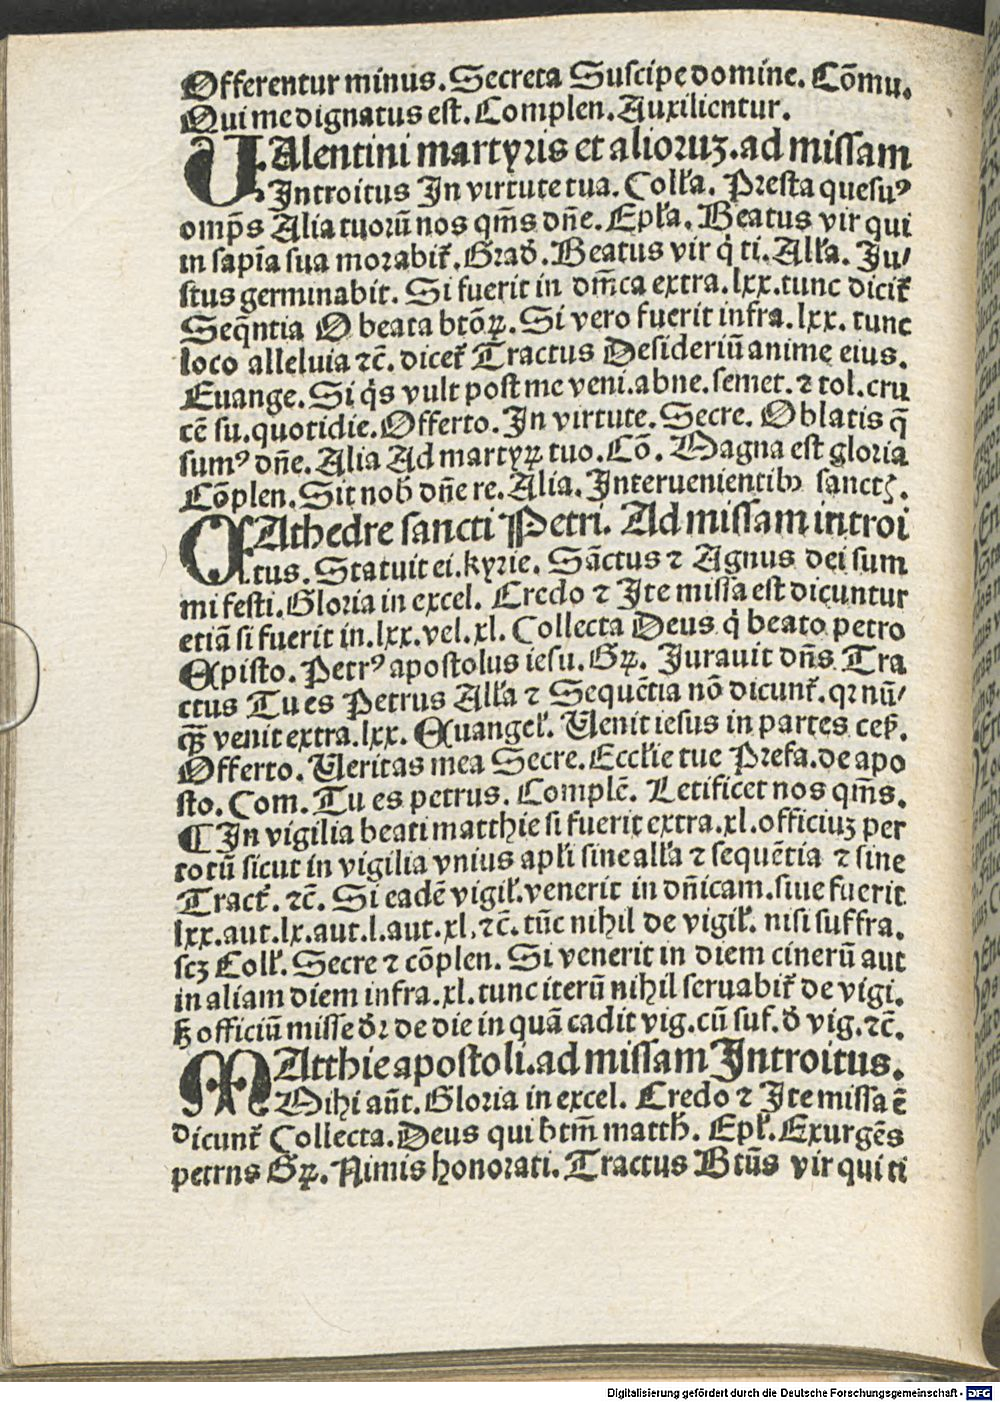 Offerentur minus. Secreta Suscipe domine. Cōmu.
Qui me dignatus est. Complen. Auxilientur.
VAlentini martyris et alioruꝫ. ad missam
Introitus In virtute tua. Coll'a. Presta quesuꝰ
omp̄s Alia tuorū nos qm̄s dn̄e. Ep̄l'a. Beatus vir qui
in sapīa sua morabit̄. Grad̄. Beatus vir q̇ ti. All'a. Ju/
stus germinabit. Si fuerit in dn̄ica extra. lxx. tunc dicit̄
Seq̄ntia O beata btōꝝ. Si vero fuerit infra. lxx. tunc
loco alleluia ⁊c̄. dicet̄ Tractus Desideriū anime eius.
Euange. Si q̇s vult post me veni. abne. semet. ⁊ tol. cru
cē su. quotidie. Offerto. In virtute. Secre. Oblatis q̄
sumꝰ dn̄e. Alia Ad martyꝝ tuo. Cō. Magna est gloria
Cōplen. Sit nob̄ dn̄e re. Alia. Interuenientibꝰ sanctꝭ.
CAthedre sancti Petri. Ad missam introi
tus. Statuit ei. kyrie. Sāctus ⁊ Agnus dei sum
mi festi. Gloria in excel. Credo ⁊ Ite missa est dicuntur
etiā si fuerit in. lxx. vel. xl. Collecta Deus q̇ beato petro
Episto. Petrꝰ apostolus iesu. Gꝝ. Jurauit dn̄s Tra
ctus Tu es Petrus All'a ⁊ Sequētia nō dicunt̄. qꝛ nū/
qꝫ venit extra. lxx. Euangel'. Uenit iesus in partes ces̄.
Offerto. Ueritas mea Secre. Eccl'ie tue Prefa. de apo
sto. Com. Tu es petrus. Complē. Letificet nos qm̄s.
¶ In vigilia beati matthie si fuerit extra. xl. officiuꝫ per
totū sicut in vigilia vnius apl'i sine all'a ⁊ sequētia ⁊ sine
Tract̄. ⁊c̄. Si eadē vigil'. venerit in dn̄icam. siue fuerit
lxx. aut. lx. aut. l. aut. xl, ⁊c̄. tūc nihil de vigil'. nisi suffra.
scꝫ Coll'. Secre ⁊ cōplen. Si venerit in diem cinerū aut
in aliam diem infra. xl. tunc iterū nihil seruabit̄ de vigi.
sꝫ officiū misse dr̄ de die in quā cadit vig. cū suf. d̄ vig. ⁊c̄.
MAtthie apostoli. ad missam Introitus.
Mihi aūt. Gloria in excel. Credo ⁊ Ite missa ē
dicunt̄ Collecta. Deus qui btm̄ matth̄. Epl̄. Exurgēs
petrns Gꝝ. Nimis honorati. Tractus Btūs vir qui ti
Digitalisierung gefördert durch die Deutsche Forschungsgemeinschaft - DFG